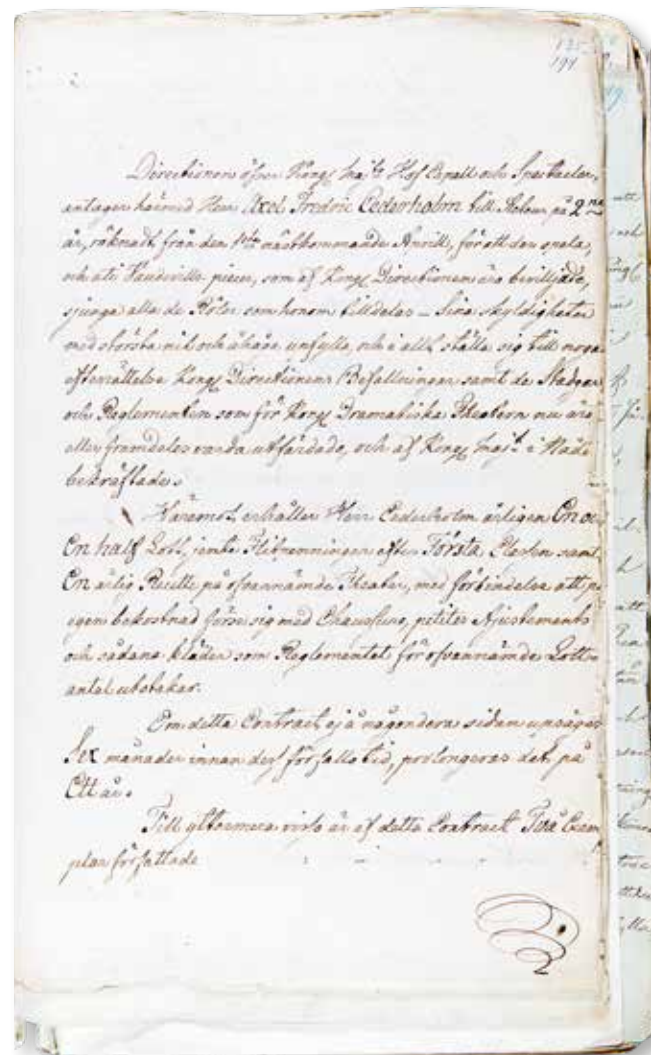 191
Directionen öfver Kongl Maj:ts Hof Capell och Spectacler,
antager härmed Herr Axel Fredric Cederholm till Acteur på 2ne
år, räknadt från den 1sta nästkommande Aprill, för att den spela,
och uti Vaudeville piecer, som af Kongl Directionen äro bevilljade,
sjunga alla de Roler som honom tilldelas – Sina skyldigheter
med största nit och ifver upfylla, och i allt ställa sig till noga
efterrättelse Kongl Directionens Befallningar samt de Stadgar
och Reglementen som för Kongl Dramatiska Theatern nu äro
eller framdeles varda utfärdade, och af Kongl Maj:t i Nåder
bekräftade.
Häremot erhåller Herr Cederholm årligen En och
En half Lott, jemte Flitpenningar efter Första Classen samt
En årlig Recette på ofvannämde Theater, med förbindelse att
egen bekostnad förse sig med Chaussure, petites Ajustements
och sådana kläder som Reglementet för ofvannämde Lotts
antal utstakar.
Om detta Contract ej å någondera sidan upsäges
Sex månader innan dess förfallo tid, prolongeras det på
Ett år.
Till yttermera visso är af detta Contract Två Exem
plar författade